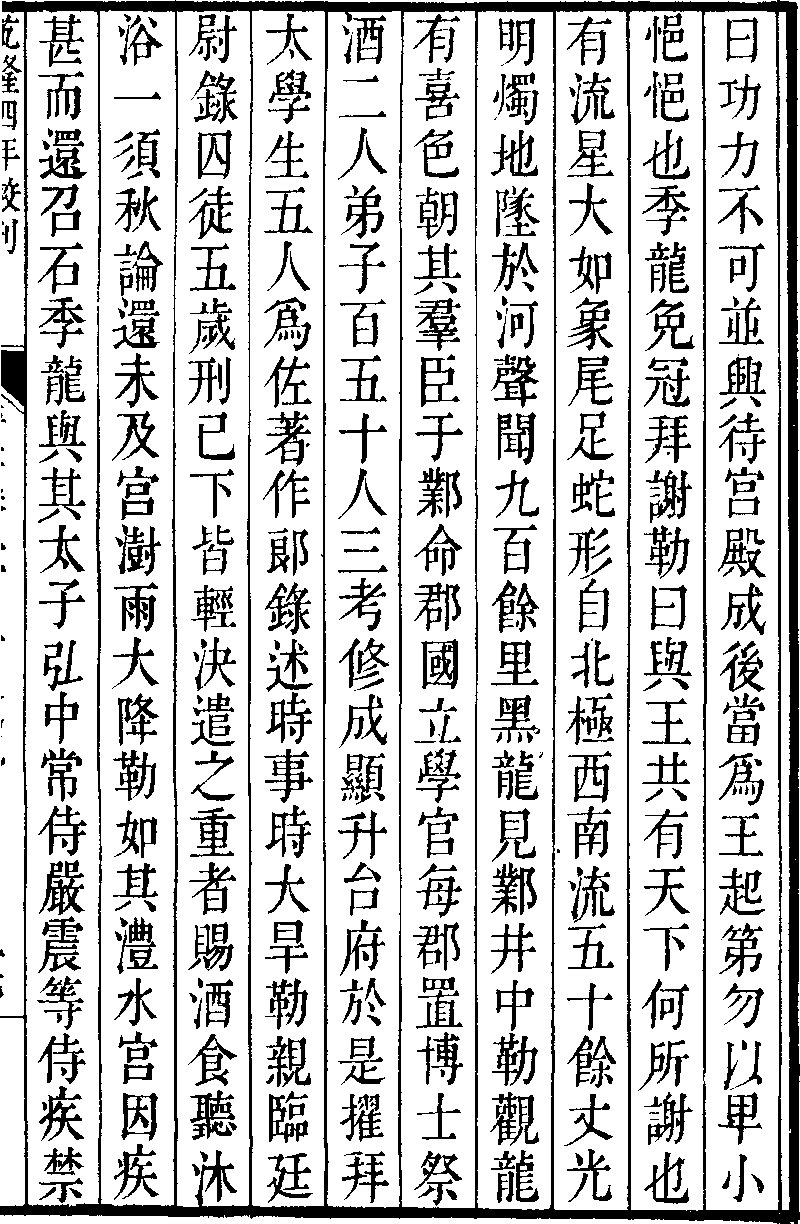 曰功力不可並興待宮殿成後當爲王起第勿以卑小
悒悒也季龍免冠拜謝勒曰與王共有天下何所謝也
有流星大如象尾足蛇形自北極西南流五十餘丈光
明燭地墜於河聲聞九百餘里黑龍見鄴井中勒觀龍
有喜色朝其羣臣于鄴命郡國立學官每郡置博士祭
酒二人弟子百五十人三考修成顯升台府於是擢拜
太學生五人爲佐著作郞錄述時事時大旱勒親臨廷
尉錄囚徒五歲刑已下皆輕決遣之重者賜酒食聽沐
浴一須秋論還未及宮澍雨大降勒如其澧水宮因疾
甚而還召石季龍與其太子弘中常侍嚴震等侍疾禁
乾隆四年校刊